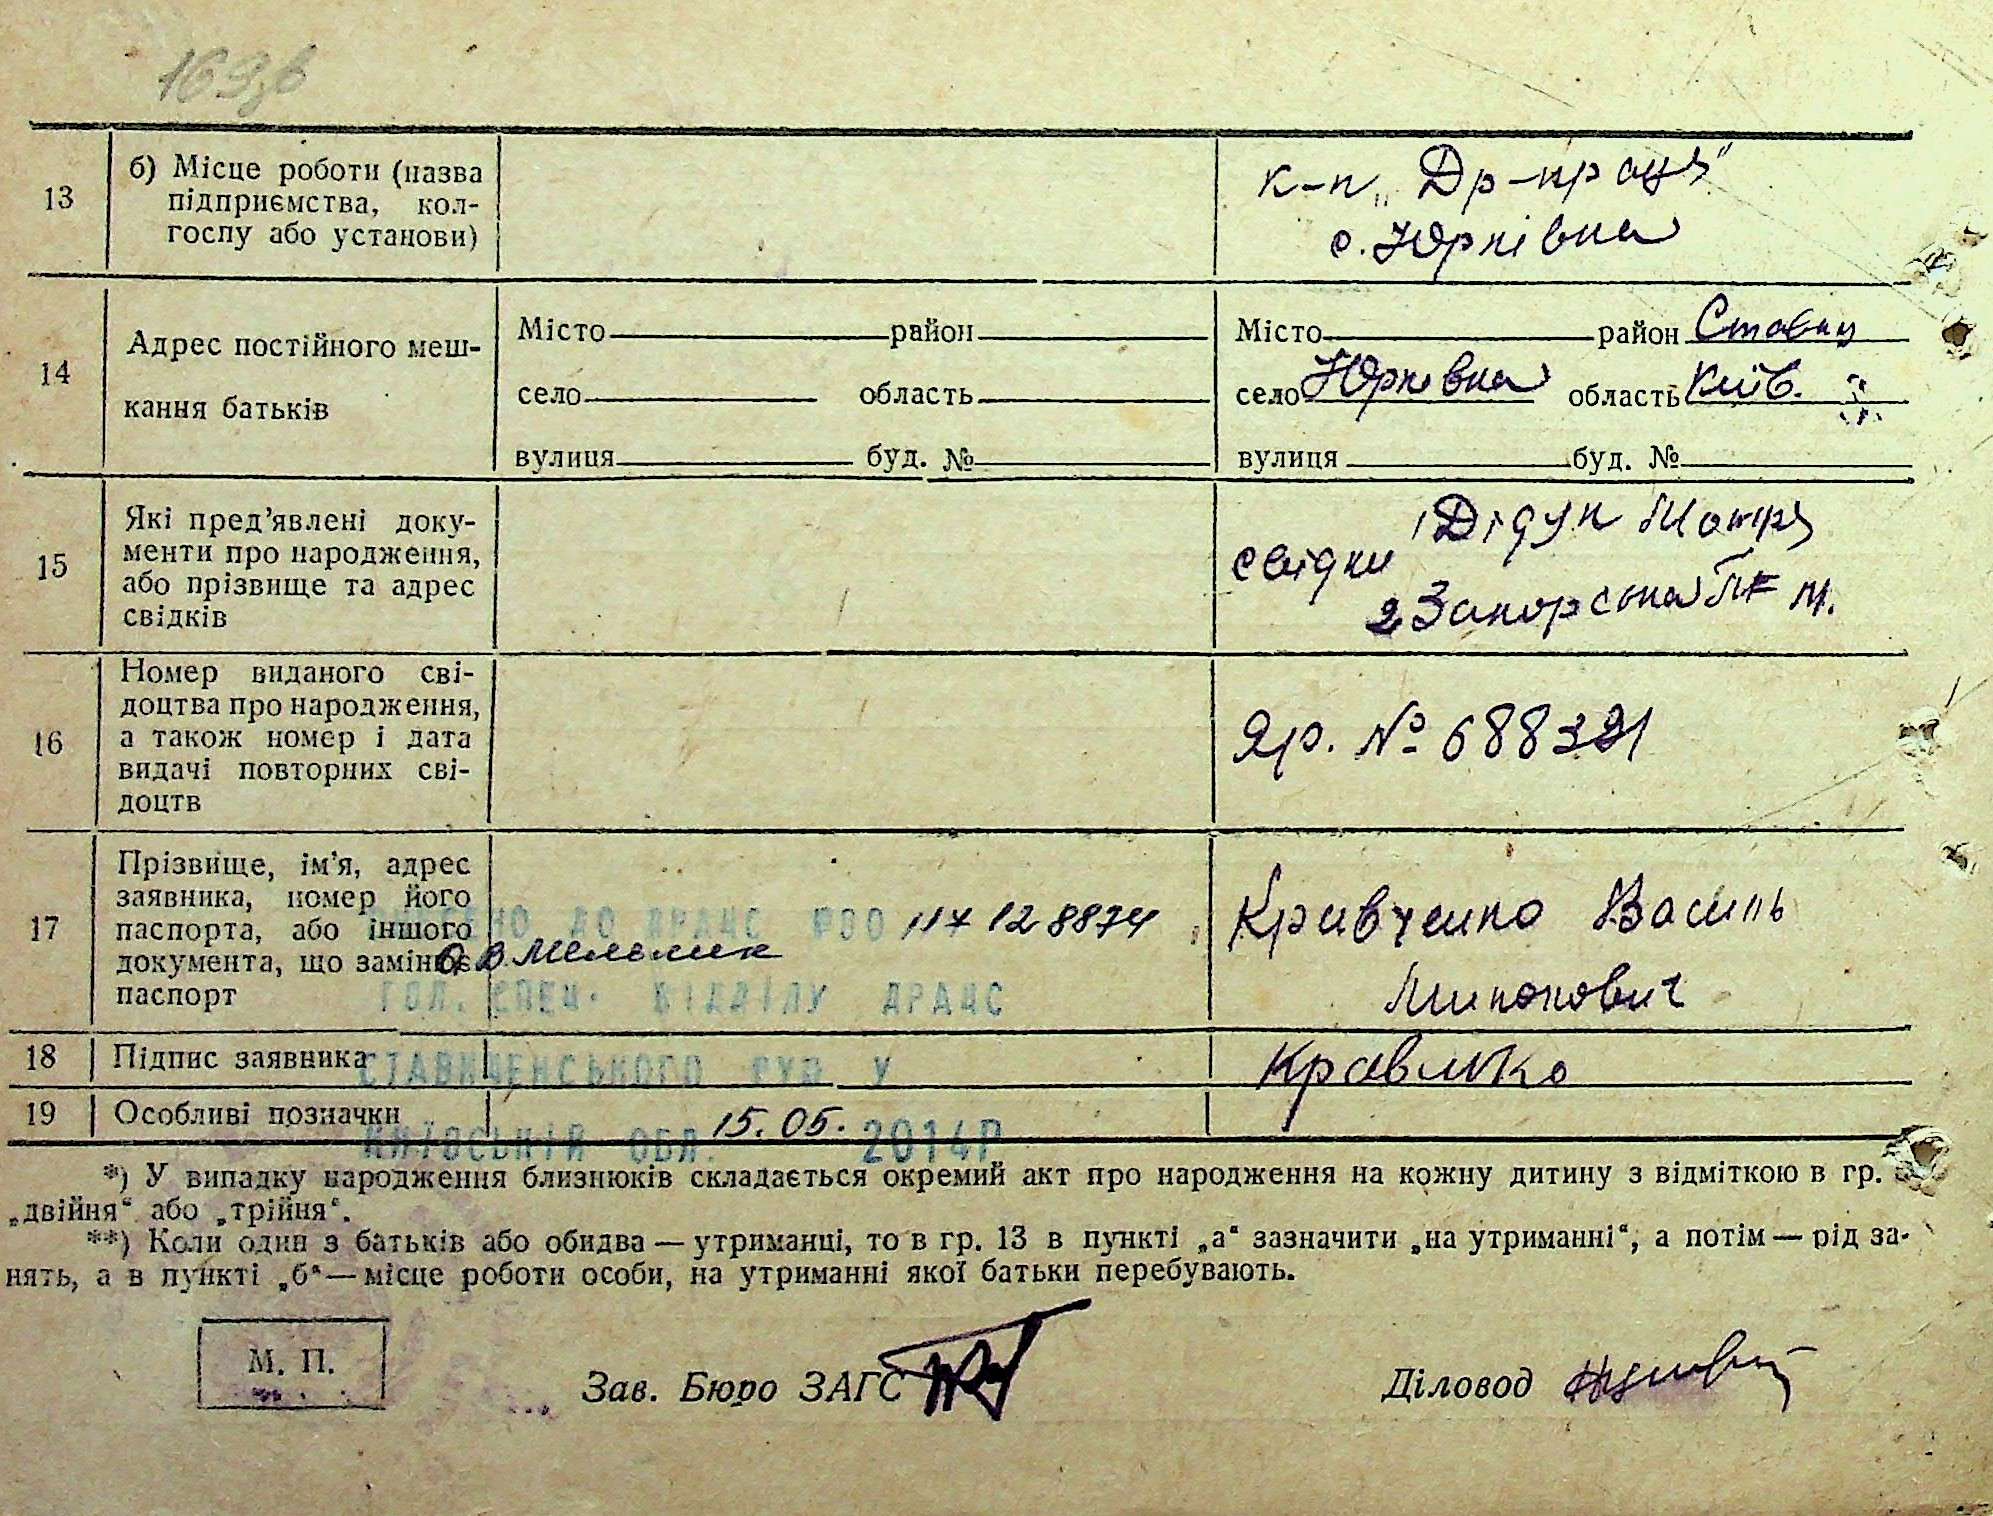 163зв
13
б) Місце роботи (назва
підприємства, кол-
госпу або установи)
к-п „Др-праця"
с. Юрківка
14
Адрес постійного меш-
кання батьків
Місто район
село область
вулиця буд. №
Місто район Ставищ
село Юрківка область Київ.
вулиця буд. №
15
Які пред'явлені доку-
менти про народження,
або прізвище та адрес
свідків
1 Дідук Мотря
свідки
2 Запорська М.
16
Номер виданого сві-
доцтва про народження,
а також номер і дата
видачі повторних сві-
доцтв
Яр. № 688391
17
Прізвище, ім'я, адрес
заявника, номер його
паспорта, або іншого
документа, що замінює
паспорт
ВНЕСЕНО ДО ДРАЦС 12 8874
О В Мельник
ГОЛ. СПЕЦ. ВІДДІЛУ ДРАЦС
Кравченко Василь
18
Підпис заявника
СТАВИЩЕНСЬКОГО РУЮ У
19
Особливі позначки
КИЇВСЬКІЙ ОБЛ. 15.05. 2014Р
*) У випадку народження близнюків складається окремий акт про народження на кожну дитину з відміткою в гр.
„двійня“ або „трійня“.
**) Коли один з батьків або обидва — утриманці, то в гр. 13 в пункті „а“ зазначити „на утриманні“, а потім — рід за-
нять, а в пункті „б“ — місце роботи особи, на утриманні якої батьки перебувають.
М. П.
Зав. Бюро ЗАГС
Діловод